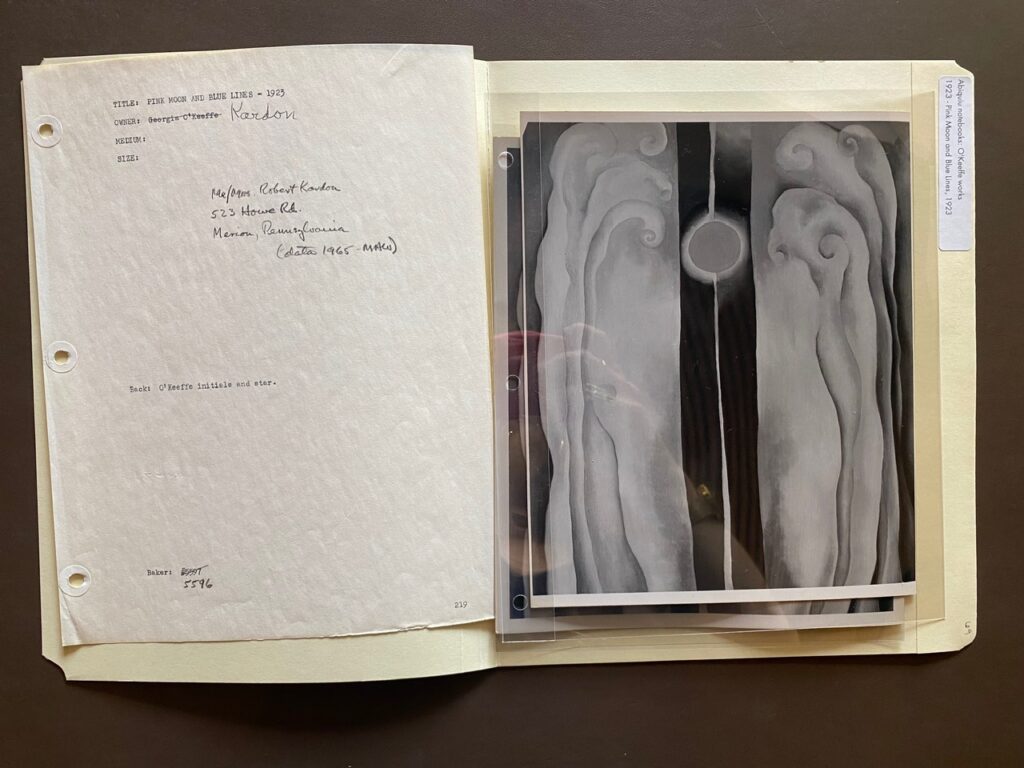 TITLE: PINK MOON AND BLUE LINES - 1923
OWNER: Georgia O'Keeffe Kardon
MEDIUM:
SIZE:
Mr/Mrs. Robert Kardon
523 Howe Rd.
Merion, Pennsylvania
(data 1965-MAW)
Back: O'Keeffe initials and star.
Baker:
5596
219
Abiquiu notebooks: O'Keeffe works
1923 - Pink Moon and Blue Lines, 1923